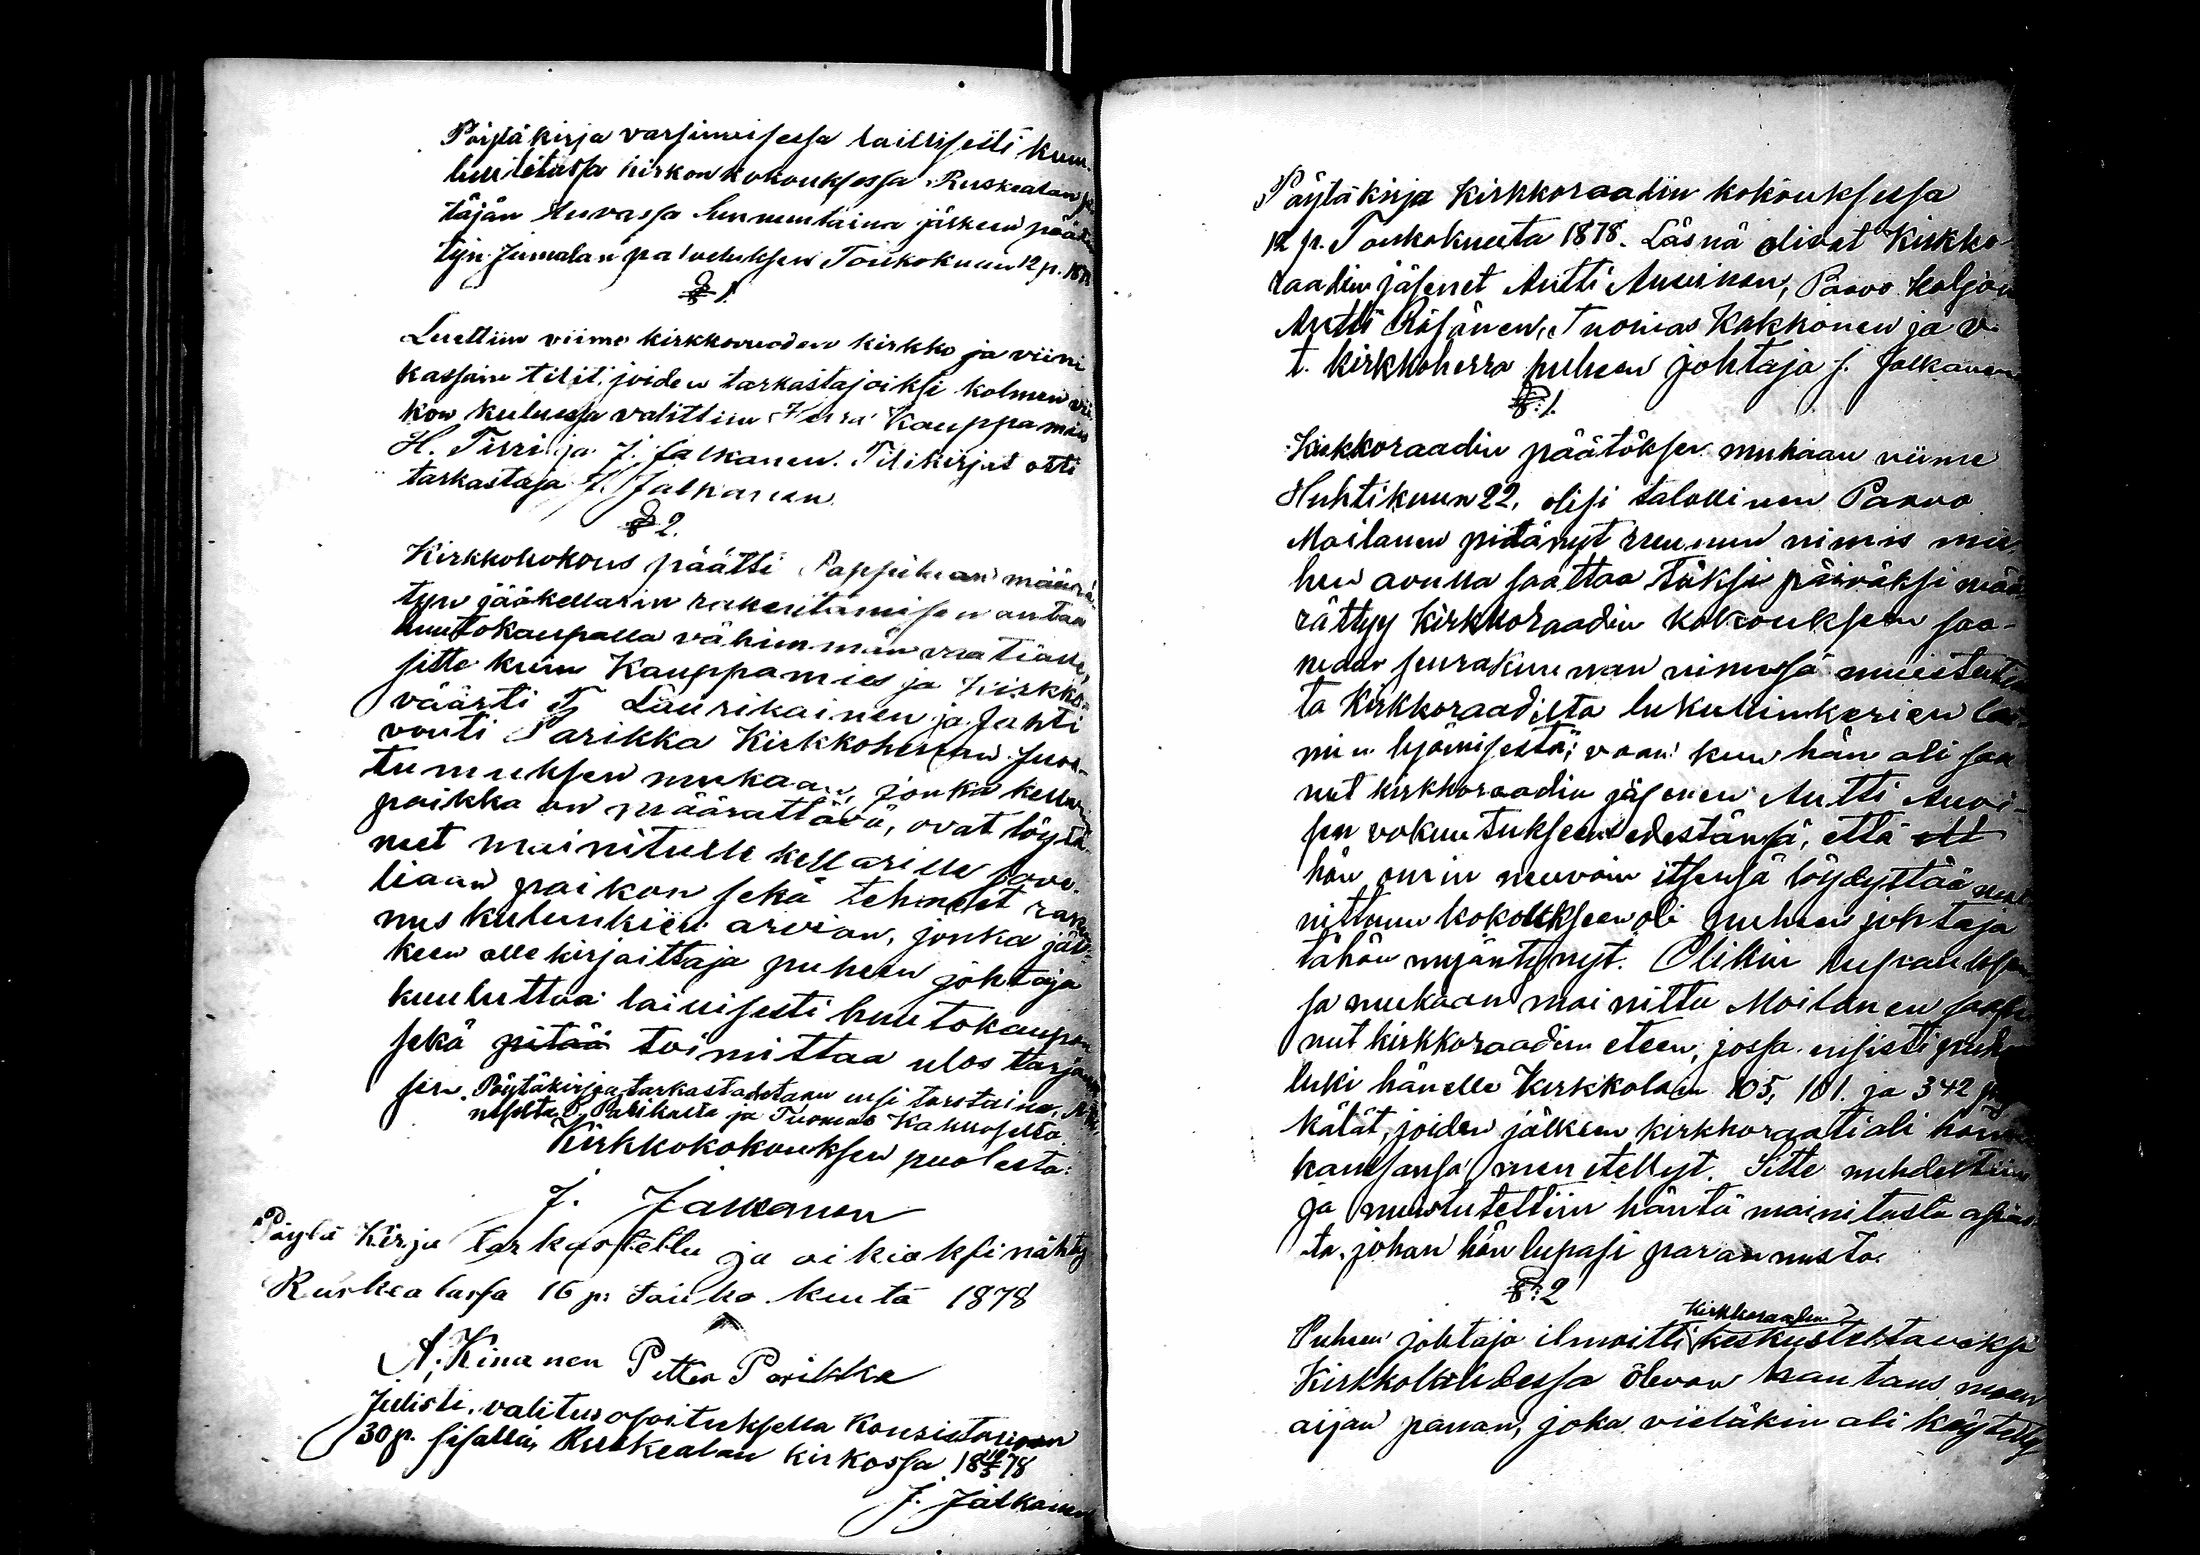 Pöytäkirja varsinaisessa laillisesti kuu-
lutetussa kirkonkokouksessa Ruskealan pi-
täjän tuvassa Sunnuntaina jälkeen pääte-
tyn Jumalan palveluksen Toukokuun 12 p. 1878
§ 1.
Luettiin viime kirkkovuoden kirkko ja viini
kassain tilit, joiden tarkastajoiksi kolmen vii-
kon kuluessa valittiin Herra Kauppamies
H. Tirri ja J. Jalkanen. Tilikirjat otti
tarkastaja J. Jalkanen.
§ 2.
Kirkkokokous päätti Pappilaan määrä-
tyn jääkellarin rakentamisen antaa
huutokaupalla vähimmän vaativalle,
sitte kuin Kauppamies ja Kirkko-
väärti T. Laurikainen ja Jahti
vouti Parikka Kirkkoherran suos-
tumuksen mukaan, jonka kellarin
paikka on määrättävä, ovat löytä-
neet mainitulle kellarille sove-
liaan paikan sekä tehneet raken-
nus kulunkien arvion, jonka jäl-
keen allekirjoittaja puheen johtaja
kuuluttaa laillisesti huutokaupan
sekä pitää toimittaa ulos tarjouk-
sen. Pöytäkirja tarkastadetaan ensi torstaina,
P. Parikalta ja Tuomas Kakkoselta.
Kirkkokokouksen puolesta:
J. Jalkanen
Pöytä Kirja tarkastettu ja oikiaksi nähty
Ruskealassa 16 p: Touko kuuta 1878
A. Kinanen Petter Parikka
Julisti, valitus osoituksella Konsistorioon
30 p. sisällä, Ruskealan kirkossa 18 19/5 78
J. Jalkanen
Pöytäkirja Kirkkoraadin kokouksessa
12 p. Toukokuuta 1878. Läsnä olivat Kirkko-
raadin jäsenet Antti Auvinen, Paavo Koljonen
Antti Räsänen, Tuomas Kakkonen ja v.
t. kirkkoherra puheen johtaja J. Jalkanen
§:1.
Kirkkoraadin päätöksen mukaan viime
Huhtikuun 22, olisi talollinen Paavo
Moilanen pitänyt ruunun nimis mie-
hen avulla saattaa täksi päiväksi mää-
rättyy Kirkkoraadin kokoukseen saa-
medan seurakunnan nimessä muistutus-
ta Kirkkoraadilta lukukinkerien lai-
min lyömisestä; vaan kun hän oli saa-
nut kirkkoraadin jäsenen Antti Auvi-
sen vakuutukseen edestänsä, että ett
hän omin neuvoin itsensä löydyttää mai-
nittuun kokoukseen oli puheen johtaja
tähän myöntynyt. Olikin lupauksen-
sa mukaan mainittu Moilanen saapu-
nut kirkkoraadin eteen, jossa ensisti puheen
luki hänelle Kirkkolain 105, 101. ja 342 py-
kälät, joiden jälkeen kirkkoraati oli hänen
kanssansa menetellyt. Sitte nuhdeltiin
ja muistutettiin häntä mainitusta asias-
ta, johan hän lupasi parannusta.
§:2
Kirkkoraadin
Puheen johtaja ilmoitti keskusteltavaksi
Kirkkolaldessa olevan kantaus
aijan panan, joka vieläkin oli käytetty